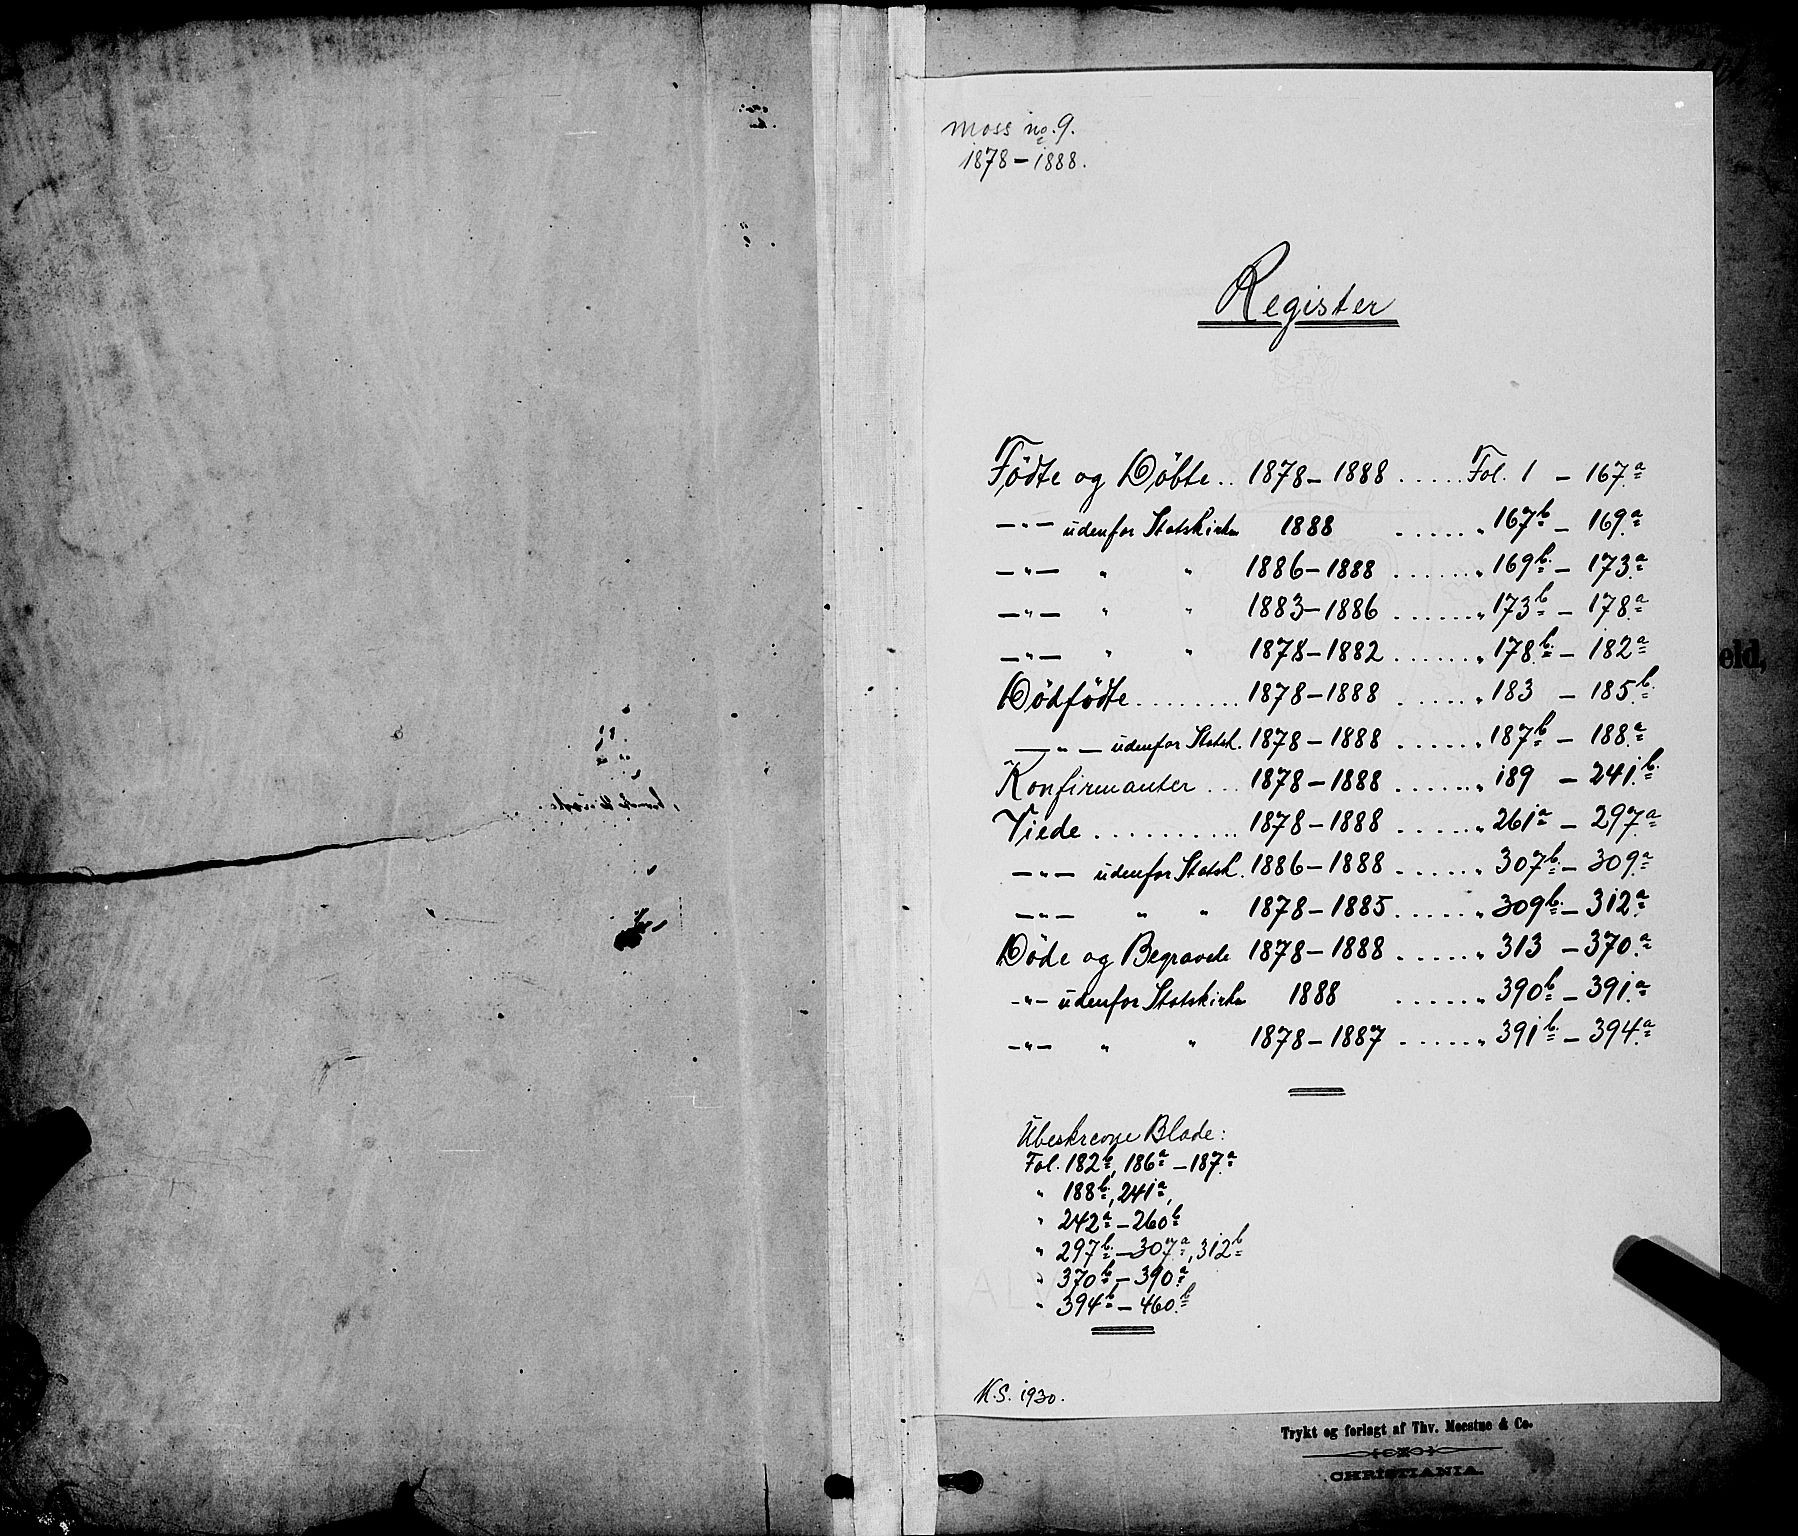 Moss no. 9.
1878 – 1888.
Register
Födte og Döbte .. 1878 – 1888 ..... Fol. 1 – 167a
–"– udenfor Statskirken 1888 ...... " 167b – 169a
–"– " " 1886 – 1888 ....... " 169b – 173a
–"– " " 1883 – 1886 ...... " 173b – 178a
–"– " " 1878 – 1882 ....... " 178b – 182a
Dödfödte ......... 1878 – 1888 ...... " 183 – 185b
–"– udenfor Statsk. 1878 – 1888 ...... " 187b – 188a
Konfirmanter ... 1878 – 1888 ...... " 189 – 241b
Viede ........... 1878 – 1888 ...... " 261a – 297a
–"– udenfor Statsk. 1886 – 1888 ...... " 307b – 309a
–"– " " 1878 – 1885 ...... " 309b – 312a
Döde og Begravede 1878 – 1888 ...... " 313 – 370a
–"– udenfor Statskirken 1888 ...... " 390b – 391a
–"– " " 1878 – 1887 ...... " 391b – 394a
Ubeskrevne Blade:
Fol. 182b, 186a – 187a
" 188b, 241a,
" 242a – 260b
" 297b – 307a, 312b
" 370b – 390a
" 394b – 460b
K.S. 1930.
Trykt og forlagt af Thv. Moestue & Co.
CHRISTIANIA.
eld,